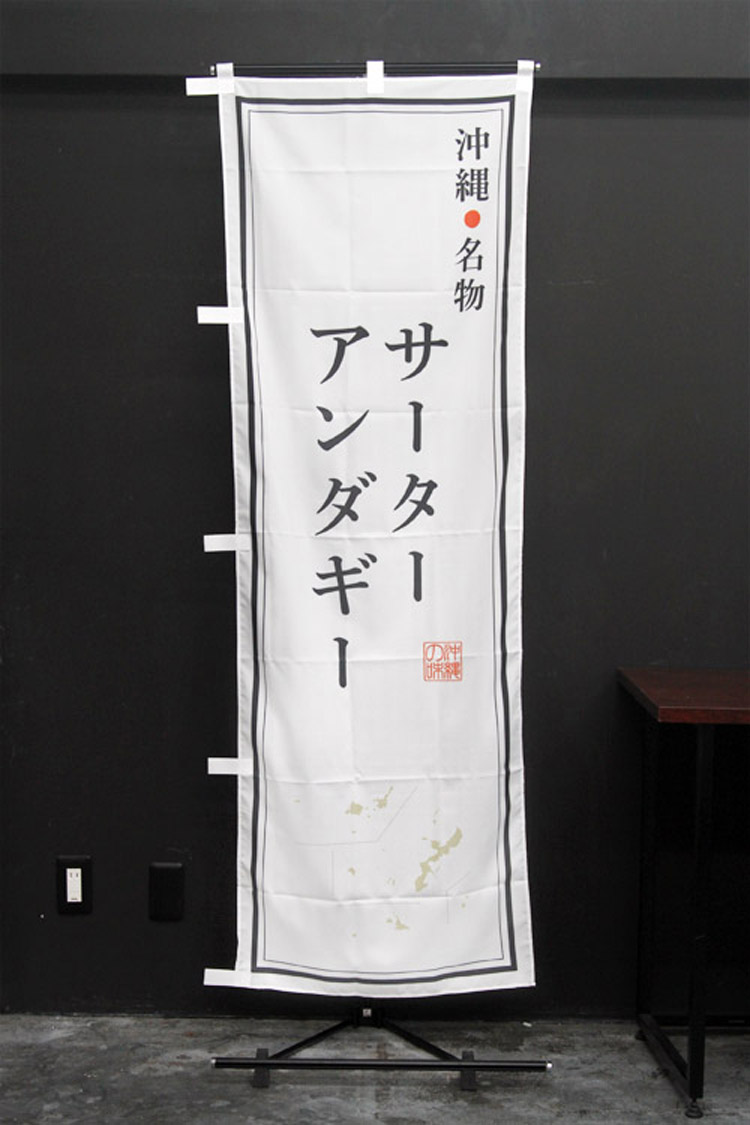 沖縄●名物
サーター
アンダギー
沖縄
の味